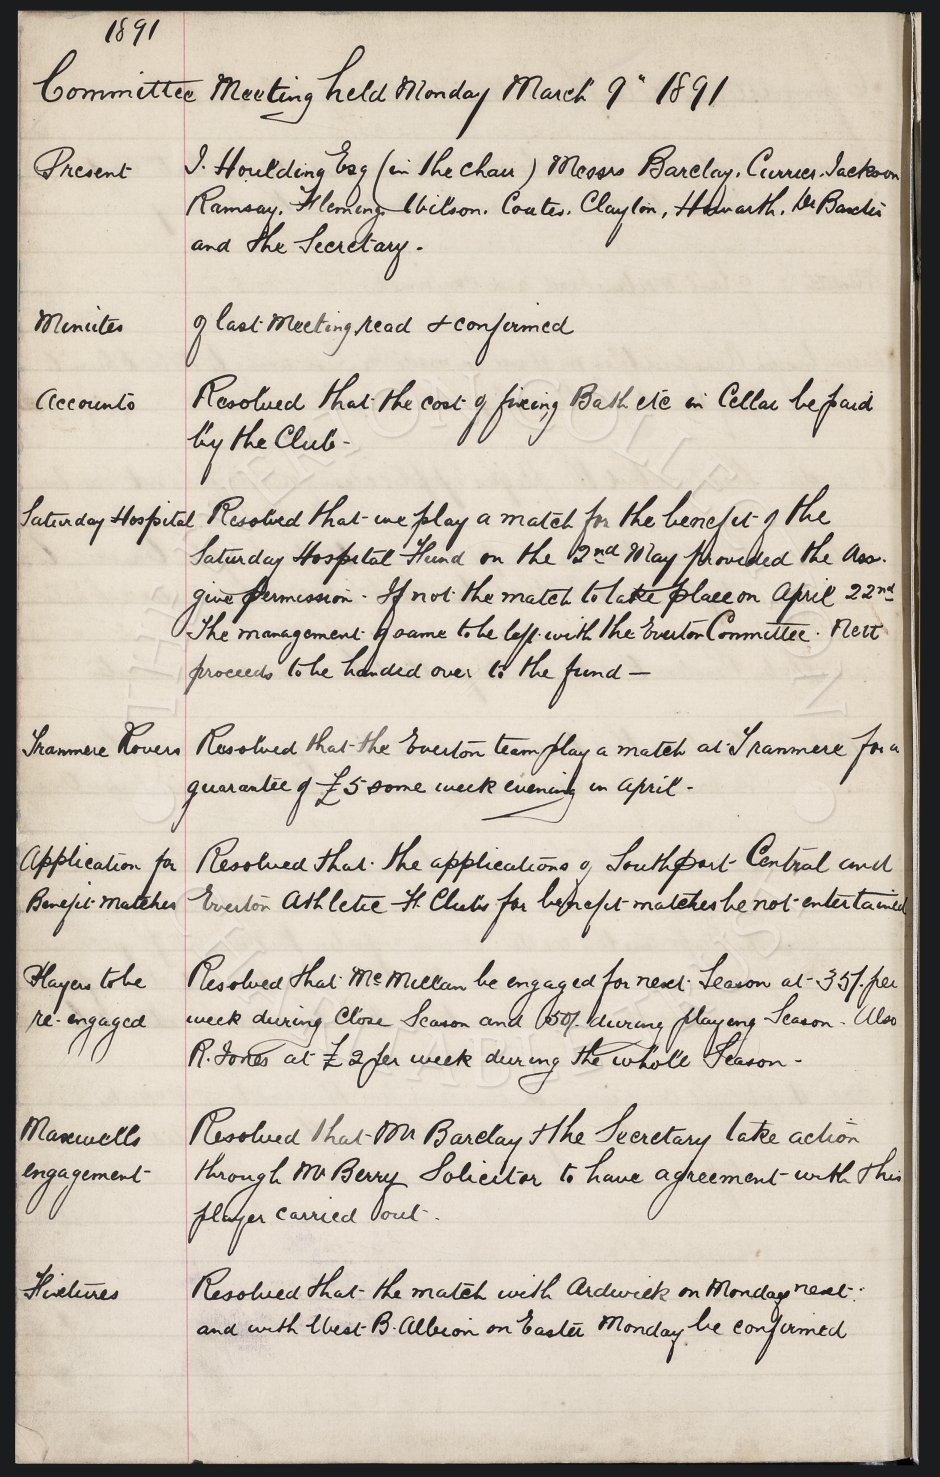 1891
Committee Meeting held Monday March 9" 1891
Present J. Houlding Esq (in the chair) Messrs Barclay. Currier. Jackson
Ramsay. Fleming. Wilson. Coates. Clayton, Howarth. Dr Baxter
and the Secretary.
Minutes of last Meeting read & confirmed
Accounts Resolved that the cost of fixing Bath etc in Cellar be paid
by the Club-
Saturday Hospital Resolved that we play a match for the benefit of the
Saturday Hospital Fund on the 2nd May provided the Ass.
give permission. If not the match to take place on April 22nd
The management of same to be left with the Everton Committee. Nett
proceeds to be handed over to the fund —
Tranmere Rovers Resolved that the Everton team play a match at Tranmere for a
guarantee of £5 some week evening in April.
Application for Resolved that the applications of Southport Central and
Benefit Matches Everton Athletic Ft. Clubs for benefit matches be not entertained
Players to be Resolved that McMillan be engaged for next Season at 35/. per
re-engaged week during Close Season and 50/. during playing Season. Also
R. Jones at £2 per week during the whole Season-
Maxwells Resolved that Mr Barclay & the Secretary take action
engagement through Mr Berry Solicitor to have agreement with this
player carried out.
Fixtures Resolved that the match with Ardwick on Monday next.
and with West B. Albion on Easter Monday be confirmed